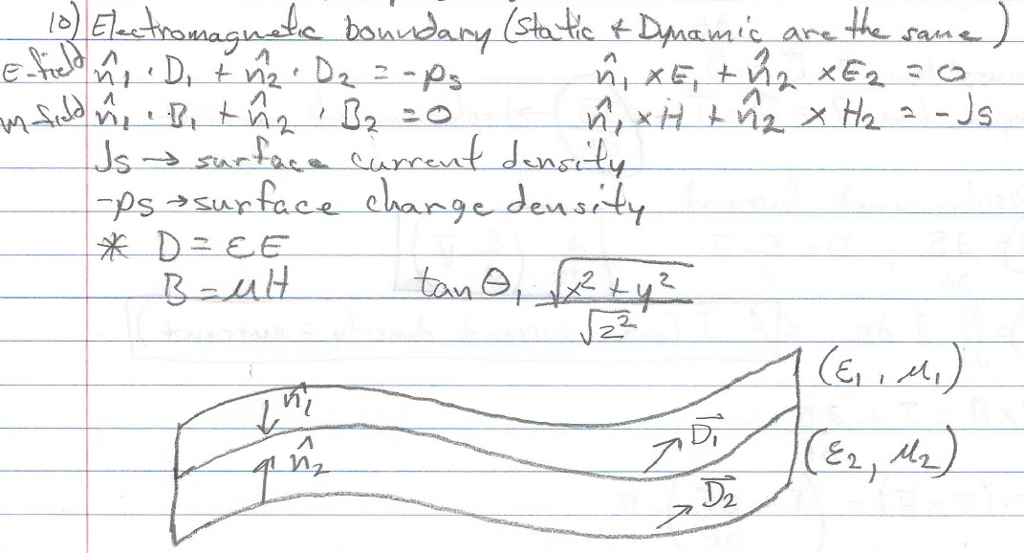 10) Electromagnetic bonndary (static + Dynamic are the same)
E-field n̂₁ · D₁ + n̂₂ · D₂ = -ρs n̂₁ × E₁ + n̂₂ × E₂ = 0
m-field n̂₁ · B₁ + n̂₂ · B₂ = 0 n̂₁ × H + n̂₂ × H₂ = -Js
Js → surface current density
-ρs → surface charge density
* D = εE
B = μH tan θ₁ √(x² + y²) / √(z²)
(ε₁, μ₁)
n̂₁
D⃗₁
n̂₂ (ε₂, μ₂)
D⃗₂